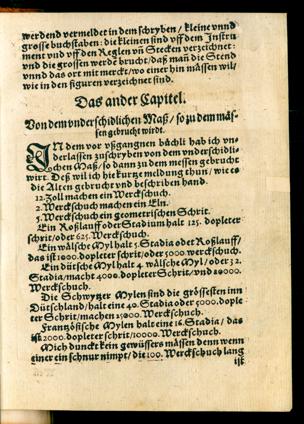 werdend vermeldet in dem schryben / kleine vnnd
grosse buchstaben: die kleinen sind vff dem Instru
ment vnd vff den Reglen vñ Stecken verzeichnet:
vnd die grossen werdē brucht / daß man die Stend
vnnd das ort mit merckt / wo einer hin mässen wil /
wie in den figuren verzeichnet sind.
Das ander Capitel.
Von dem vnderschidlichen Maß / so zu dem mäs-
sen gebrucht wirdt.
IN dem vor vßgangnen bächli hab ich vn-
derlassen zuschryben von dem vnderschidli-
chen Maß / so dann zu dem messen gebrucht
wirt. Deß wil ich hie kurtze meldung thun / wie es
die Alten gebrucht vnd beschriben hand.
12. Zoll machen ein Werckschuch.
2. Werckschuch machen ein Eln.
5. Werckschuch ein geometrischen Schrit.
Ein Roßlauff oder Stadium halt 125. dopleter
schrit / oder 625. Werckschuch.
Ein wälsche Myl halt 8. Stadia oder Roßlauff /
das ist 1000. dopleter schrit / oder 5000. werckschuch.
Ein dütsche Myl halt 4. wälsche Myl / oder 32.
Stadia / macht 4000. dopleter Schrit / vnd 20000.
Werckschuch.
Die Schwytzer Mylen sind die grössesten inn
Dütschland / halt eine 40. Stadia oder 5000. dople
ter Schrit / machen 25000. Werckschuch.
Frantzösische Mylen halt eine 16. Stadia / das
ist 2000. dopleter schrit / 10000. Werckschuch.
Mich dunckt kein gewüssers mässen denn wenn
einer ein schnur nimpt / die 100. Werckschuch lang
ist